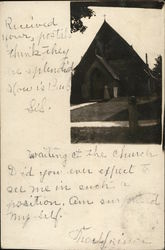 Received
your postal
think they
are splendid
How is Bub
Sel.
waiting at the church
Did you ever expect to
see me in such a
position. Am surprised
my self.